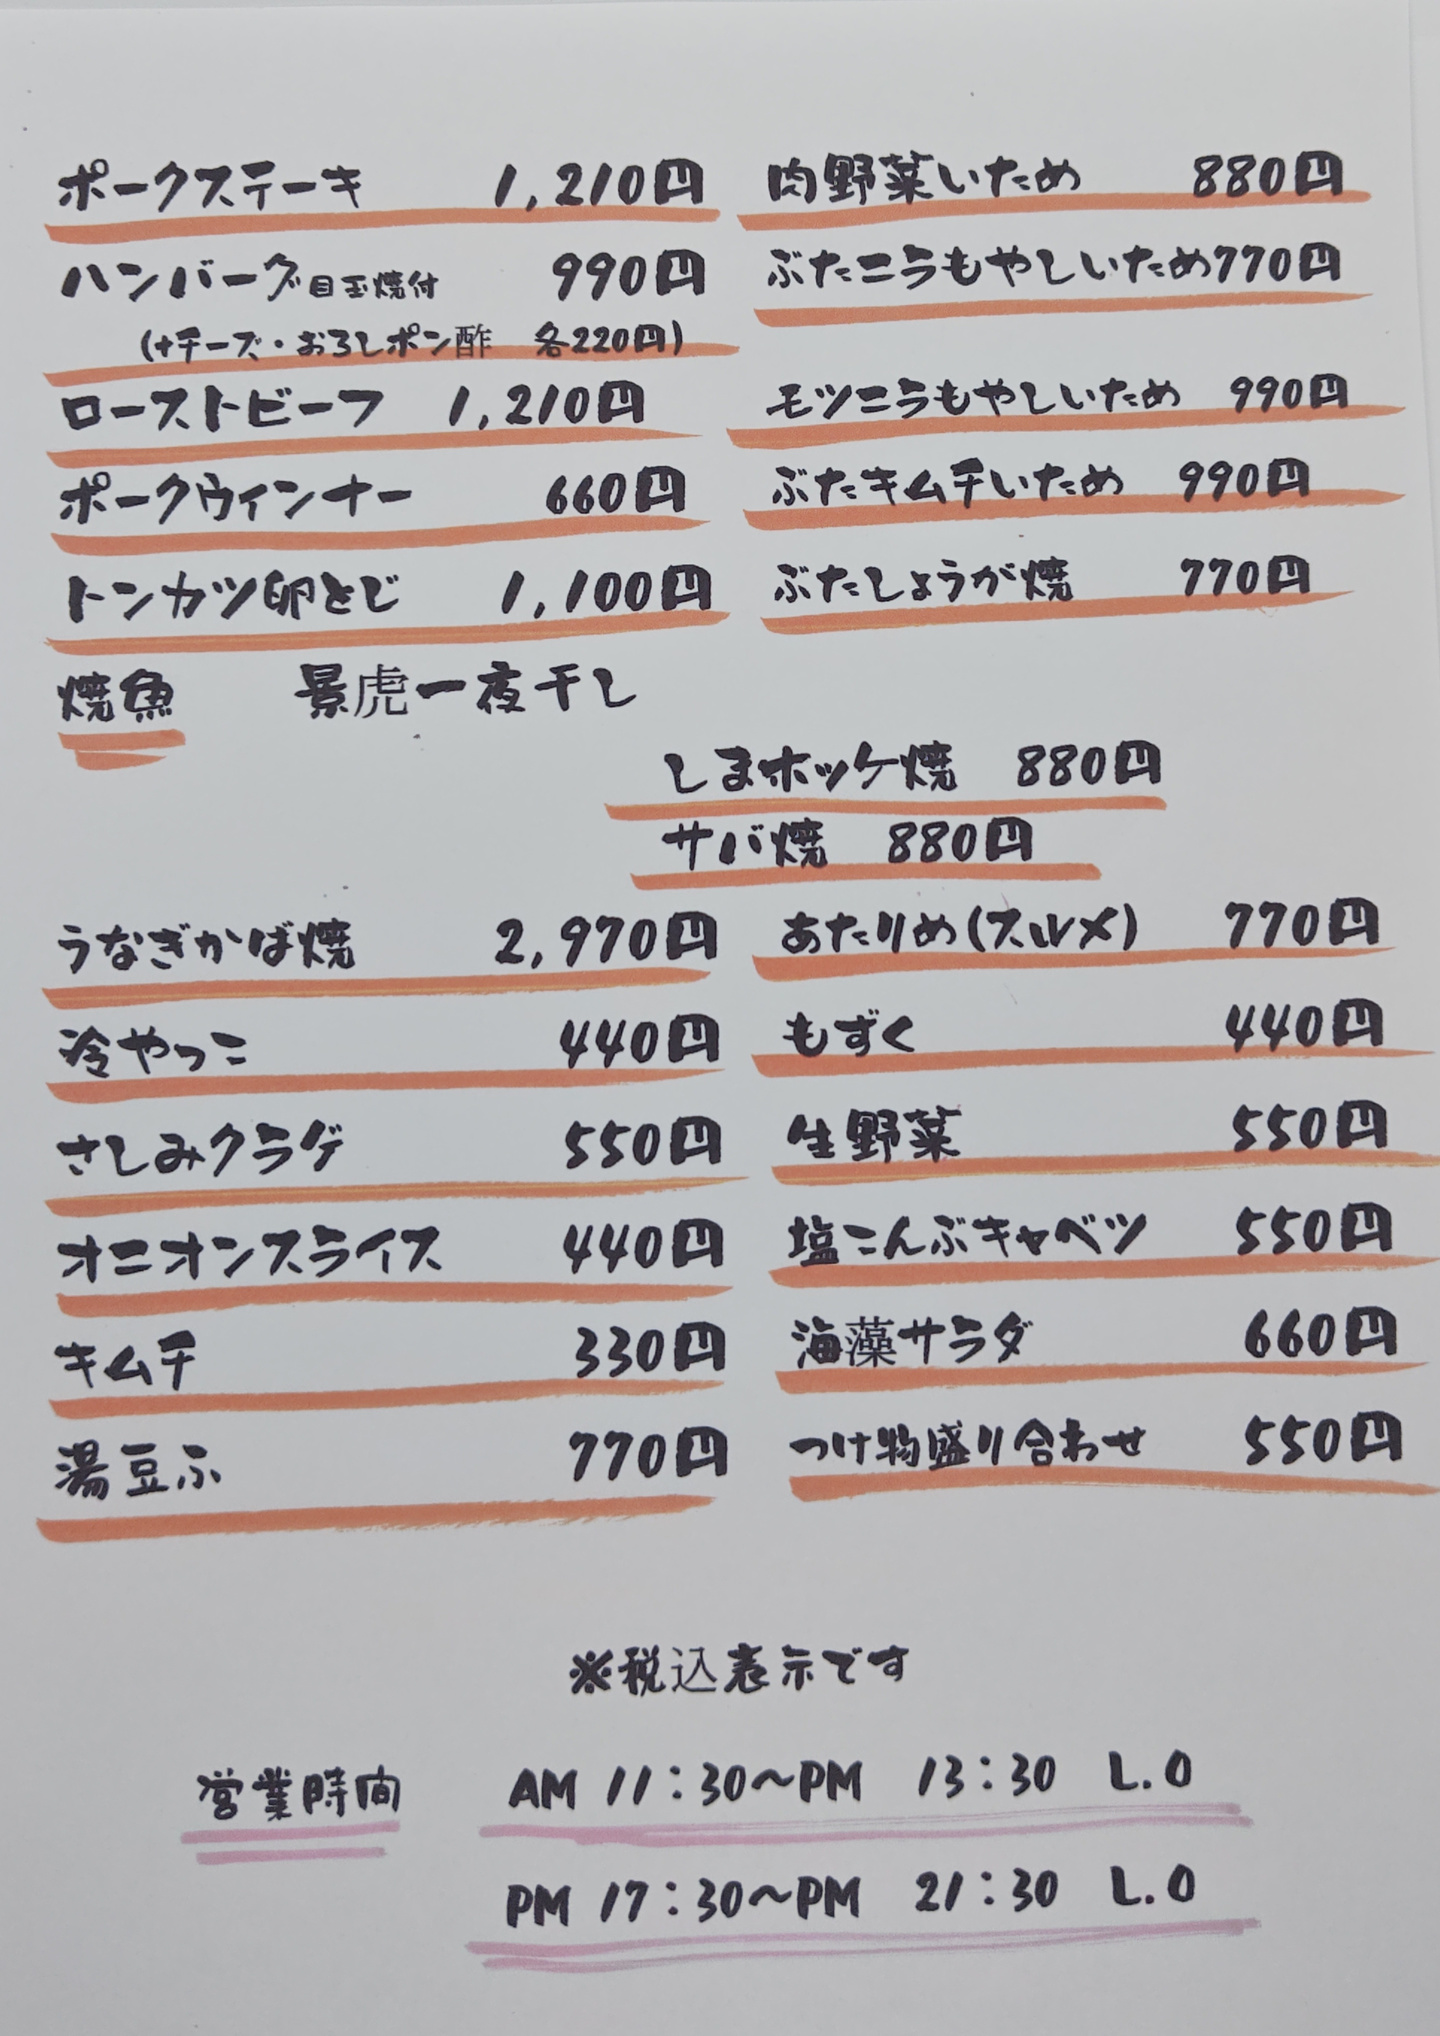 ポークステーキ 1,210円
ハンバーグ目玉焼付 990円
(+チーズ・おろしポン酢 各220円)
ローストビーフ 1,210円
ポークウィンナー 660円
トンカツ卵とじ 1,100円
肉野菜いため 880円
ぶたニラもやしいため770円
モツニラもやしいため 990円
ぶたキムチいため 990円
ぶたしょうが焼 770円
焼魚 景虎一夜干し
しまホッケ焼 880円
サバ焼 880円
うなぎかば焼 2,970円
冷やっこ 440円
さしみクラゲ 550円
オニオンスライス 440円
キムチ 330円
湯豆ふ 770円
あたりめ(スルメ) 770円
もずく 440円
生野菜 550円
塩こんぶキャベツ 550円
海藻サラダ 660円
つけ物盛り合わせ 550円
※税込表示です
営業時間 AM 11:30～PM 13:30 L.O
PM 17:30～PM 21:30 L.O